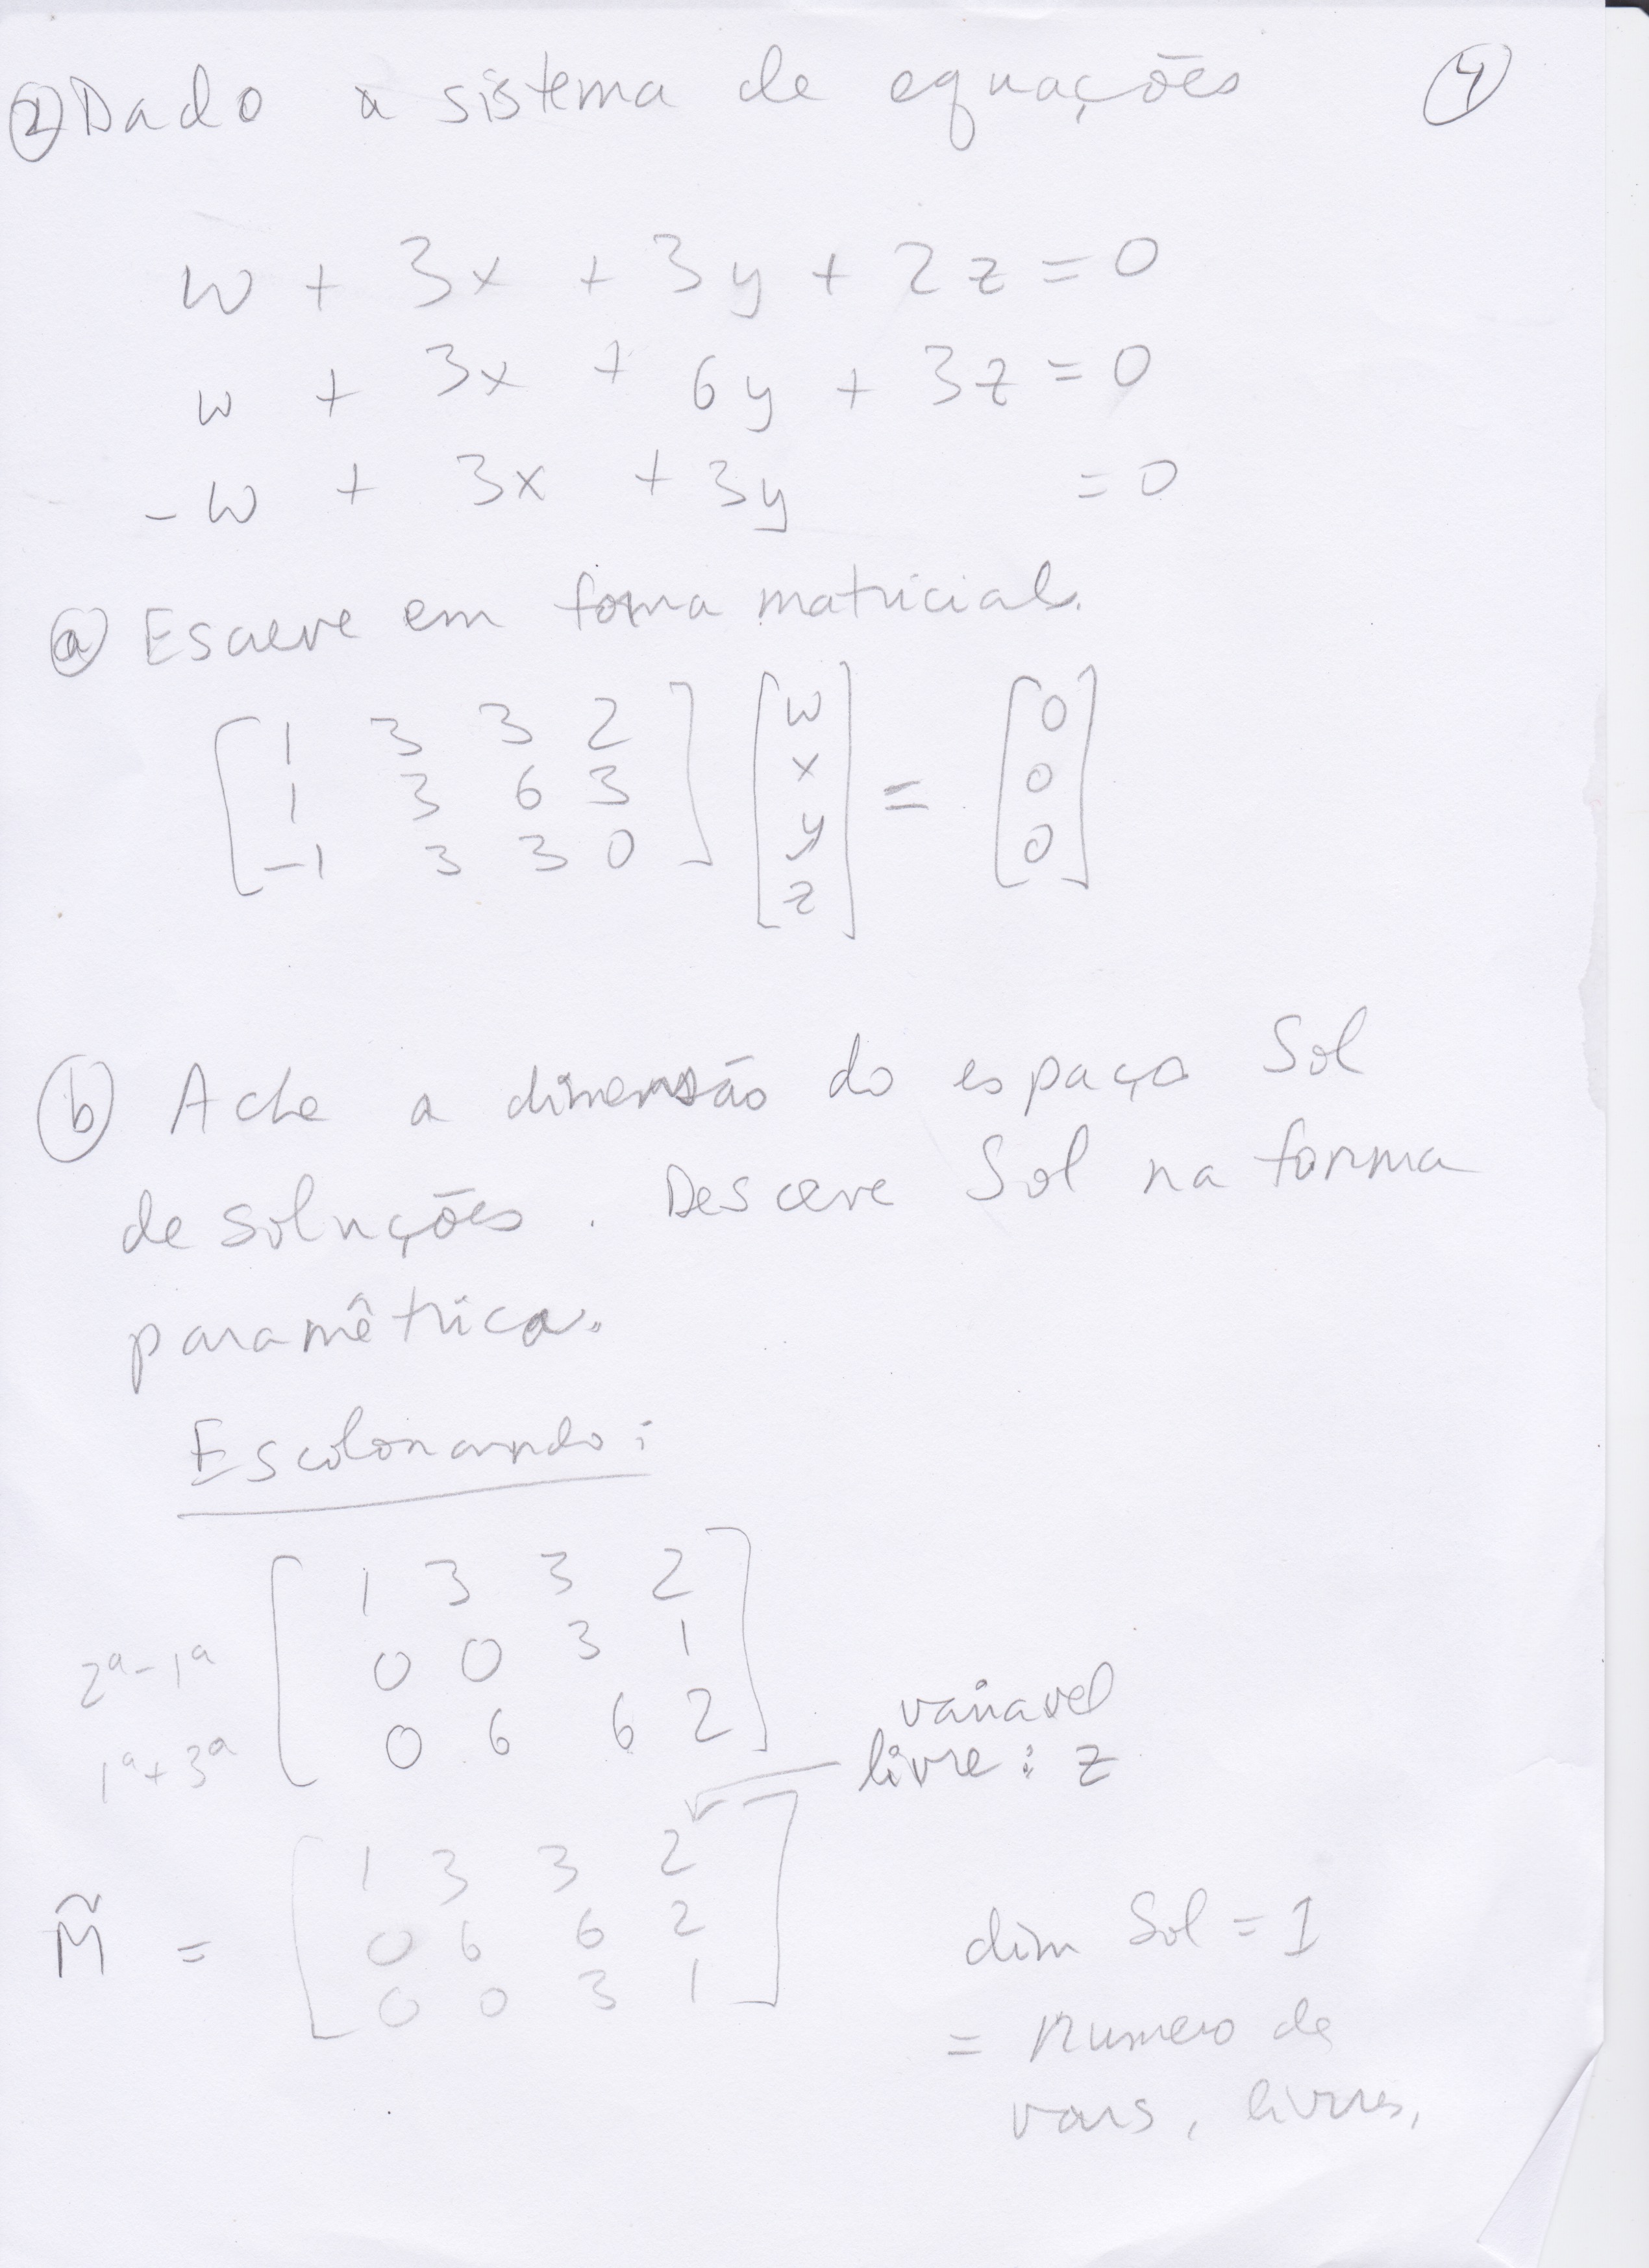 ② Dado a sistema de equações ④
w + 3x + 3y + 2z = 0
w + 3x + 6y + 3z = 0
-w + 3x + 3y = 0
ⓐ Escreve em forma matricial.
[1 3 3 2] [w] = [0]
[1 3 6 3] [x] [0]
[-1 3 3 0] [y] [0]
[z]
ⓑ Ache a dimensão do espaço Sol
de soluções. Descreve Sol na forma
paramêtrica.
Escalonando:
[1 3 3 2]
2ª-1ª [0 0 3 1]
1ª+3ª [0 6 6 2]
variavel
livre: z
[1 3 3 2]
M̃ = [0 6 6 2]
[0 0 3 1]
dim Sol = 1
= numero de
vars. livres.